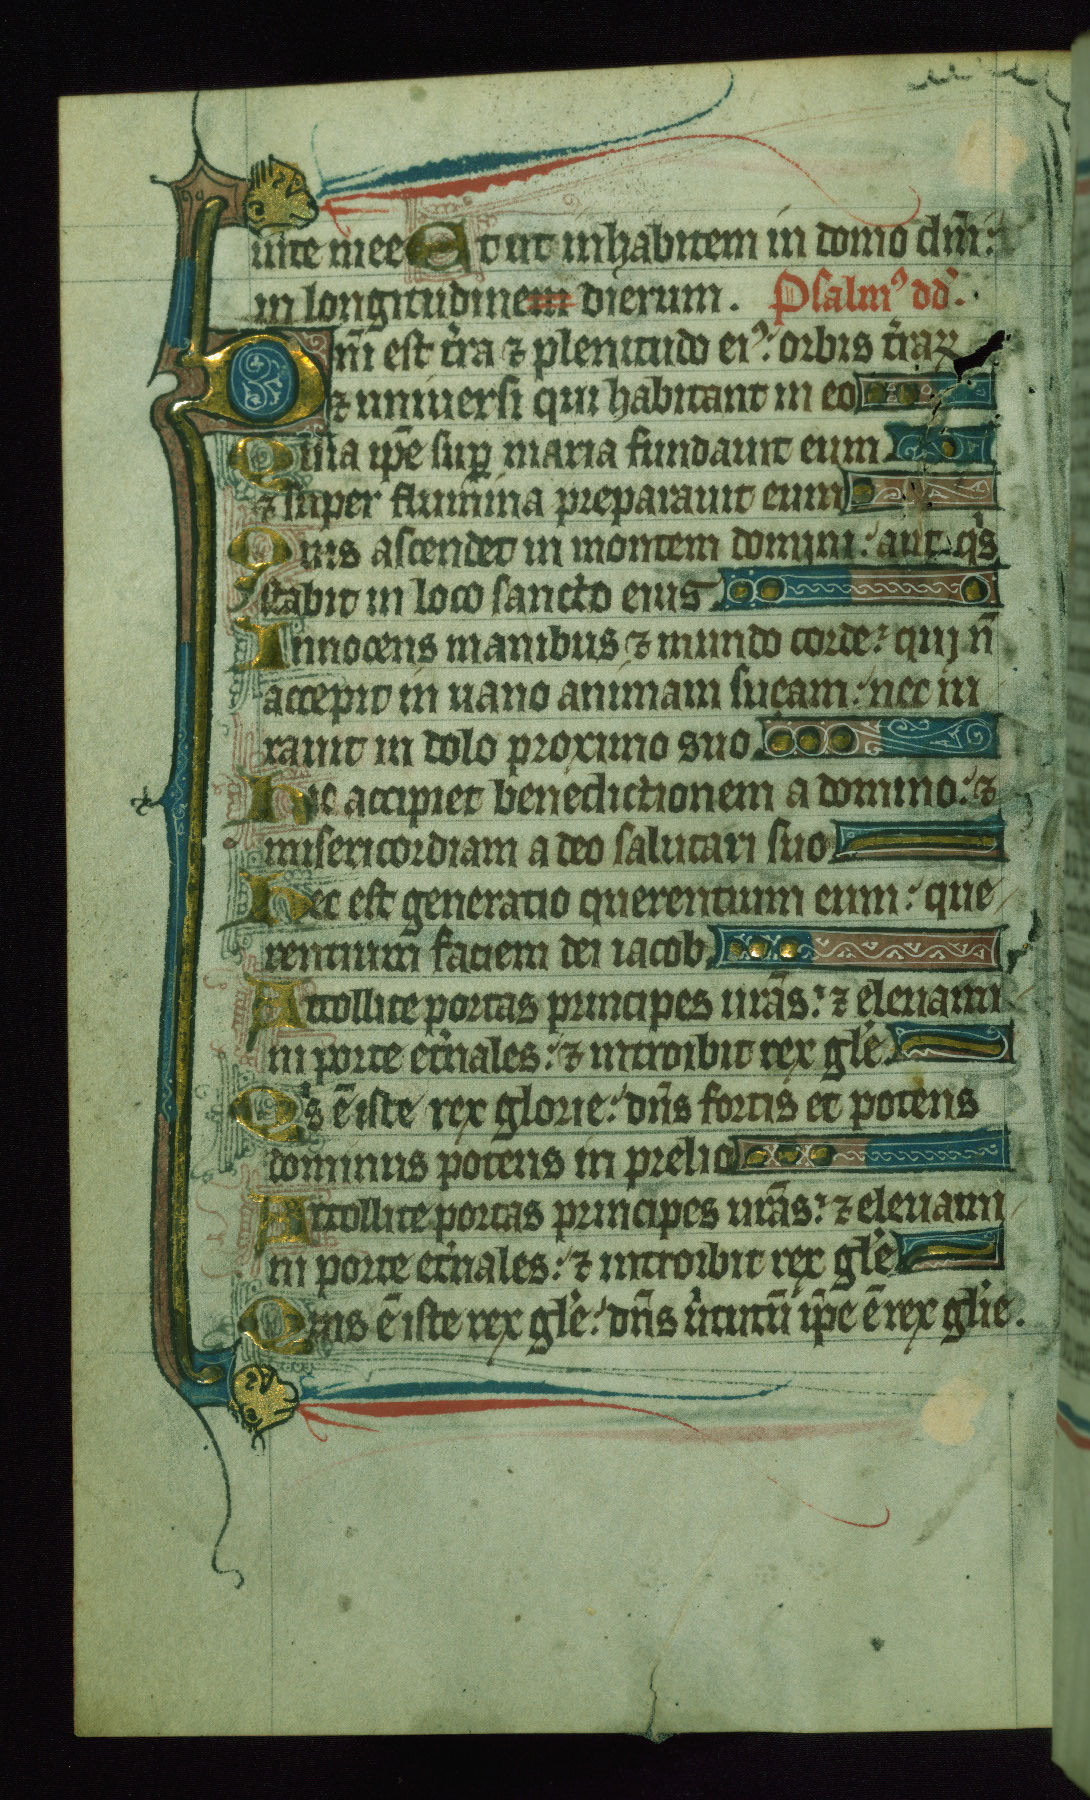 uite mee Et ut inhabitem in domo dn̄i:
in longitudinem dierum. Psalmꝰ dd̉.
Dn̄i est t̉ra ⁊ plenitudo eiꝰ: orbis t̉raꝝ
⁊ uniuersi qui habitant in eo
Quia ip̄e suꝑ maria fundauit eum
⁊ super flumina preparauit eum
Quis ascendet in montem domini: aut qͥs
stabit in loco sancto eius
Innocens manibus ⁊ mundo corde: qui n̄
accepit in uano animam suam: nec iu
rauit in dolo proximo suo
Hic accipiet benedictionem a domino: ⁊
misericordiam a deo salutari suo
Hec est generatio querentium eum: que
rentium faciem dei iacob
Attollite portas principes ur̄as: ⁊ eleuami
ni porte et̉nales: ⁊ introibit rex gl̉e
Qͥs ē iste rex glorie: dn̄s fortis et potens
dominus potens in prelio
Attollite portas principes ur̄as: ⁊ eleuami
ni porte et̉nales: ⁊ introibit rex gl̉e
Quis ē iste rex gl̉e: dn̄s ủtutū ip̄e ē rex gl̉ie.